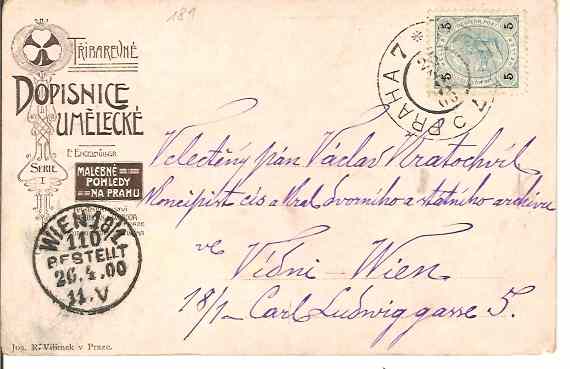 181
TŘÍBAREVNÉ
DOPISNICE
UMĚLECKÉ
SERIE
I
MALEBNÉ
POHLEDY
NA PRAHU
PRAHA 7
5 5
5 5
Velectěný pán Václav Kratochvíl
Koncipist cís a král dvorního a státního archivu
ve
Vídni - Wien
18/1 Carl Ludwiggasse 5.
WIEN 18/1
110
BESTELLT
26.4.00
11.V
Jos. R. Vilímek v Praze.